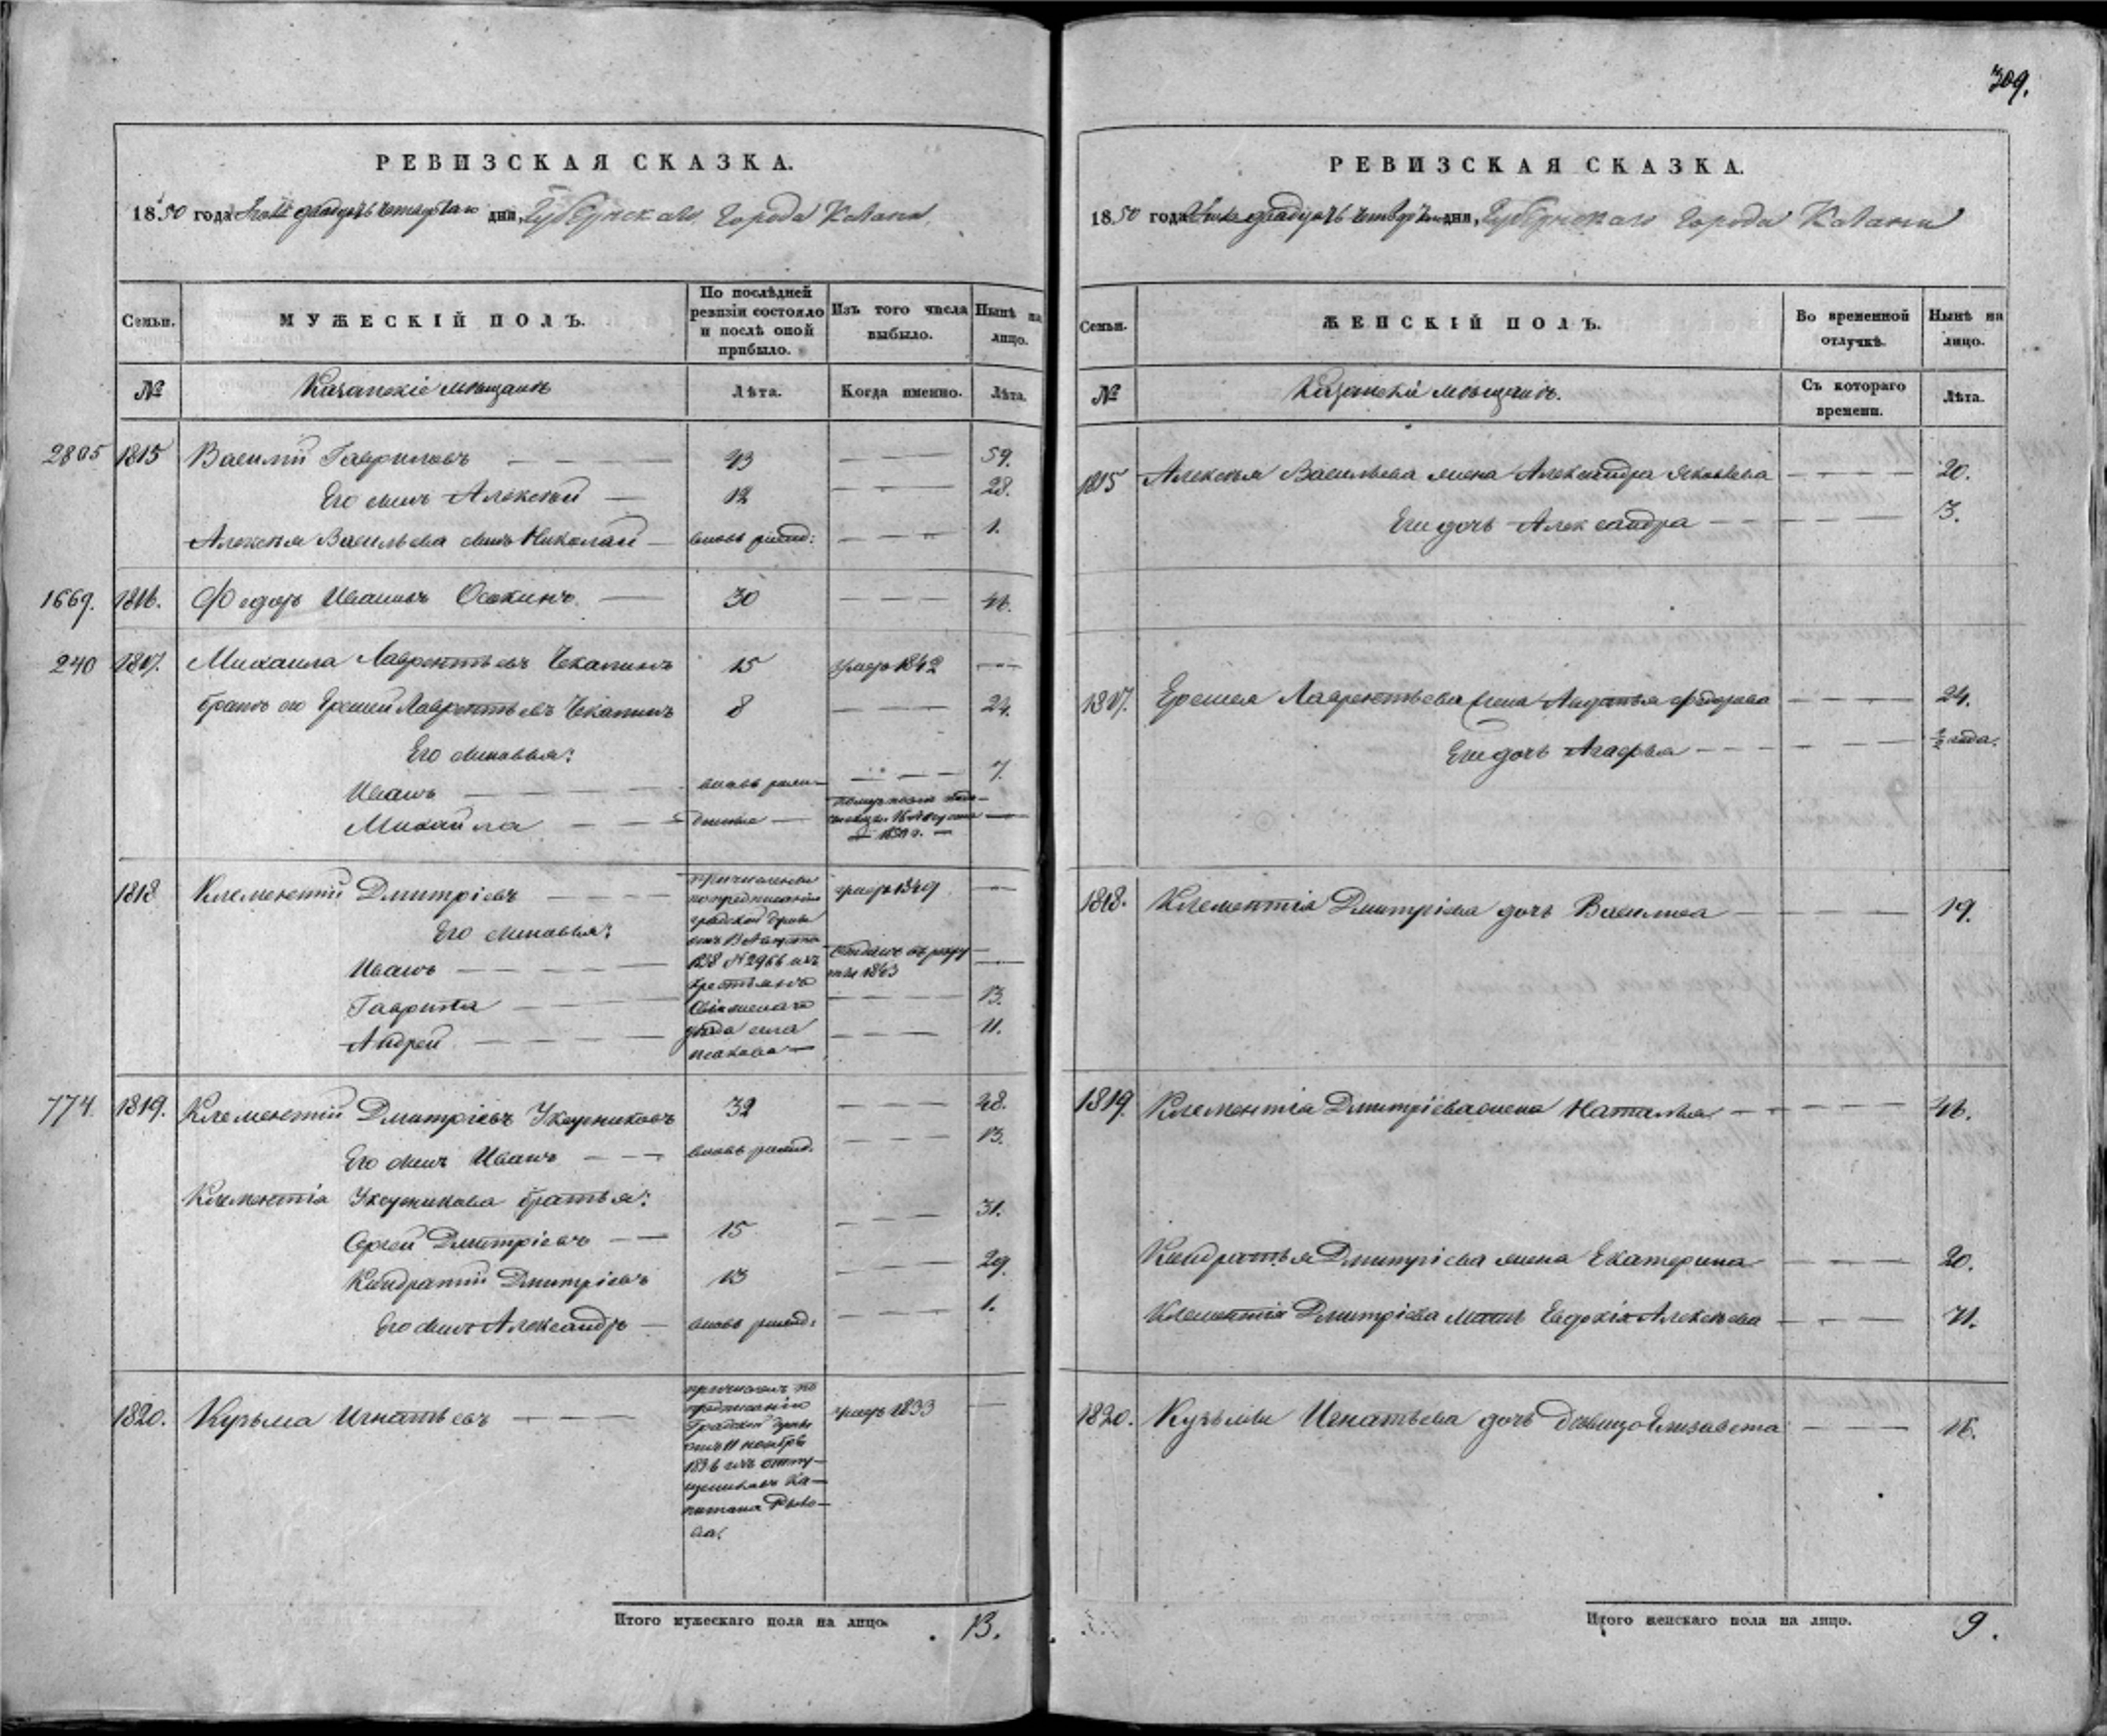 309.
РЕВИЗСКАЯ СКАЗКА.
1850 года Іюля двадцать четвертаго дня, Губернскаго города Казани.
Семьи.
МУЖЕСКІЙ ПОЛЪ.
По послѣдней ревизіи состояло и послѣ оной прибыло.
Изъ того числа выбыло.
Нынѣ на лицо.
№
Казанскіе мѣщане
Лѣта.
Когда именно.
Лѣта.
2805 1815 Василій Гавриловъ 43 59.
Его сынъ Алексѣй 12 28.
Алексѣя Васильева сынъ Николай вновь рожд: 1.
1669. 1816. Федоръ Ивановъ Осокинъ 30 46.
240 1817. Михаила Лаврентьевъ Чекалинъ 15 умеръ 1842
братъ его Еремей Лаврентьевъ Чекалинъ 8 24.
Его сыновья:
Иванъ вновь рож- 7.
Михайла денные 16 Августа 1850 г.
1818 Клементій Дмитріевъ причислены по предписанію градской думы отъ 13 Августа 1838 № 2966 изъ крестьянъ уѣзда села умеръ 1849
Его сыновья:
Иванъ Отданъ въ рекруты 1843
Гаврила 13.
Андрей 11.
774. 1819. Клементій Дмитріевъ Укуриковъ 32 48.
Его сынъ Иванъ вновь рожд. 13.
Клементія братья:
Сергей Дмитріевъ 15 31.
Кондратій Дмитріевъ 13 29.
Его сынъ Александръ вновь рожд: 1.
1820. Кузьма Игнатьевъ причисленъ по предписанію Градской думы отъ 11 ноября 1836 изъ отпущенниковъ Капитана умеръ 1833
Итого мужескаго пола на лицо. 13.
РЕВИЗСКАЯ СКАЗКА.
1850 года Іюля двадцать четвертаго дня, Губернскаго города Казани
Семьи.
ЖЕНСКІЙ ПОЛЪ.
Во временной отлучкѣ.
Нынѣ на лицо.
№
Казанскіе мѣщане.
Съ котораго времени.
Лѣта.
1815 Алексѣя Васильева жена Александра Яковлева 20.
Ея дочь Александра 3.
1817. Еремея Лаврентьева жена Федорова 24.
Ея дочь Агафья ½ года.
1818. Клементія Дмитріева дочь Василиса 19.
1819. Клементія Дмитріева жена Наталья 46.
Кондратья Дмитріева жена Екатерина 20.
Клементія Дмитріева мать Евдокія Алексѣева 71.
1820. Кузьмы Игнатьева дочь девица Елизавета 16.
Итого женскаго пола на лицо. 9.